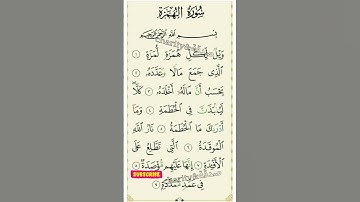 سُورَةُ الهُمَزَةِ
بِسْمِ اللَّهِ الرَّحْمَٰنِ الرَّحِيمِ
وَيْلٌ لِّكُلِّ هُمَزَةٍ لُّمَزَةٍ ١
ٱلَّذِى جَمَعَ مَالًا وَعَدَّدَهُۥ ٢
يَحْسَبُ أَنَّ مَالَهُۥٓ أَخْلَدَهُۥ ٣ كَلَّا
لَيُنۢبَذَنَّ فِى ٱلْحُطَمَةِ ٤ وَمَآ
أَدْرَىٰكَ مَا ٱلْحُطَمَةُ ٥ نَارُ ٱللَّهِ
ٱلْمُوقَدَةُ ٦ ٱلَّتِى تَطَّلِعُ عَلَى
ٱلْأَفْـِٔدَةِ ٧ إِنَّهَا عَلَيْهِم مُّؤْصَدَةٌ ٨
SUBSCRIBE
فِى عَمَدٍ مُّمَدَّدَةٍۭ ٩